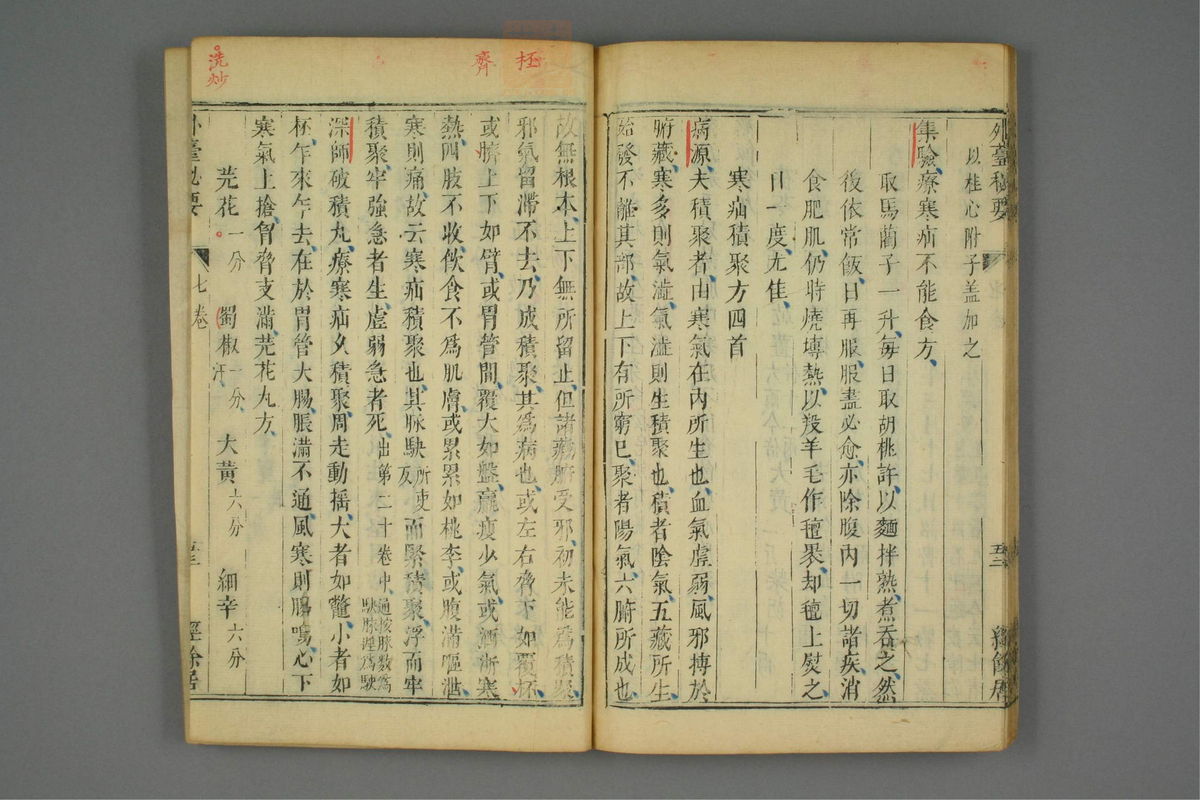 外臺秘要
經餘居
以桂心附子蓋加之
集驗療寒疝不能食方
取馬藺子一升每日取胡桃許以麵拌熟煮吞之然
後依常飯日再服服盡必愈亦除腹内一切諸疾消
食肥肌仍時燒塼熱以羖羊毛作氊裹却氊上熨之
日一度尤佳
寒疝積聚方四首
病源夫積聚者由寒氣在内所生也血氣虚弱風邪搏於
腑藏寒多則氣澁氣澁則生積聚也積者陰氣五藏所生
始發不離其部故上下有所窮已聚者陽氣六腑所成也
極
齊
故無根本上下無所留止但諸藏腑受邪初未能爲積聚
邪氣留滯不去乃成積聚其爲病也或左右脅下如覆杯
或臍上下如臂或胃管間覆大如盤羸瘦少氣或洒淅寒
熱四肢不收飲食不爲肌膚或累累如桃李或腹滿嘔泄
寒則痛故云寒疝積聚也其脉駃所吏反而緊積聚浮而牢
積聚牢強急者生虚弱急者死出第二十卷中通按脉數爲駃脉遲爲駃
深師破積丸療寒疝久積聚周走動揺大者如鼈小者如
杯乍來乍去在於胃管大腸脹滿不通風寒則腸鳴心下
寒氣上搶胷脅支滿芫花丸方
芫花一分 蜀椒一分汗 大黄六分 細辛六分
洗炒
外臺秘要
七卷
經餘居